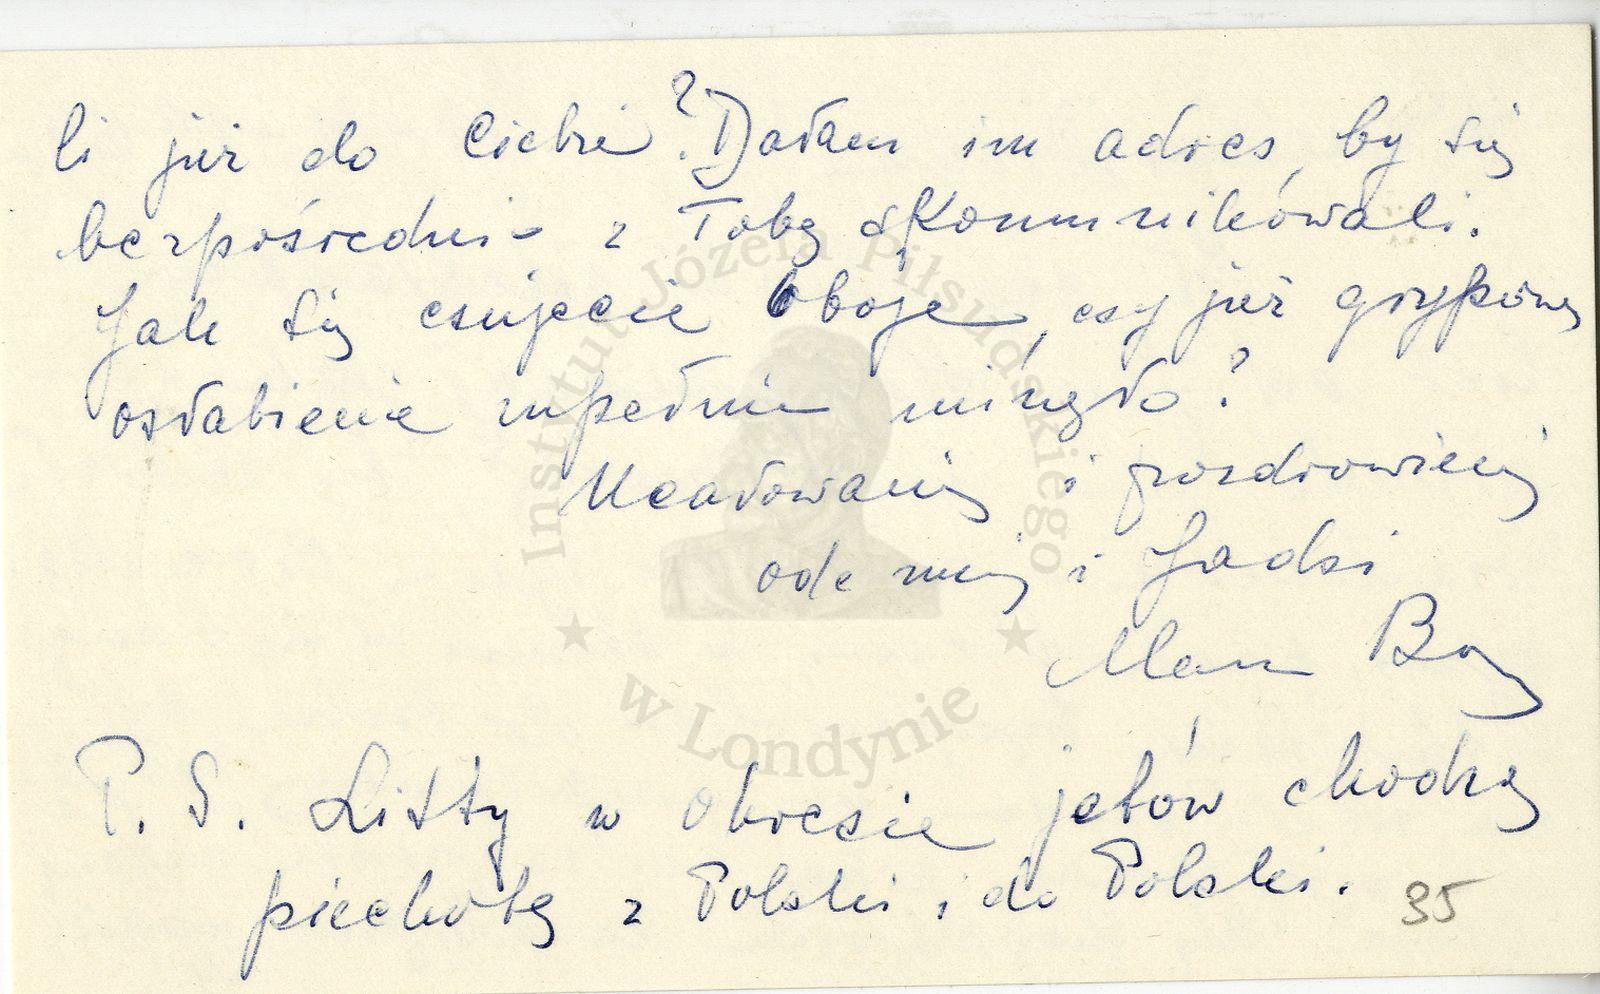 li już do Ciebie? Dałam im adres, by się
bezpośrednio z Tobą skomunikowali.
Jak się czujecie oboje, czy już grypowe
osłabienie zupełnie minęło?
Ucałowania i pozdrowienia
ode mnie i Jadzi
P.S. Listy w okresie jetów chodzą
piechotą z Polski i do Polski.
35
Instytut Józefa Piłsudskiego
w Londynie